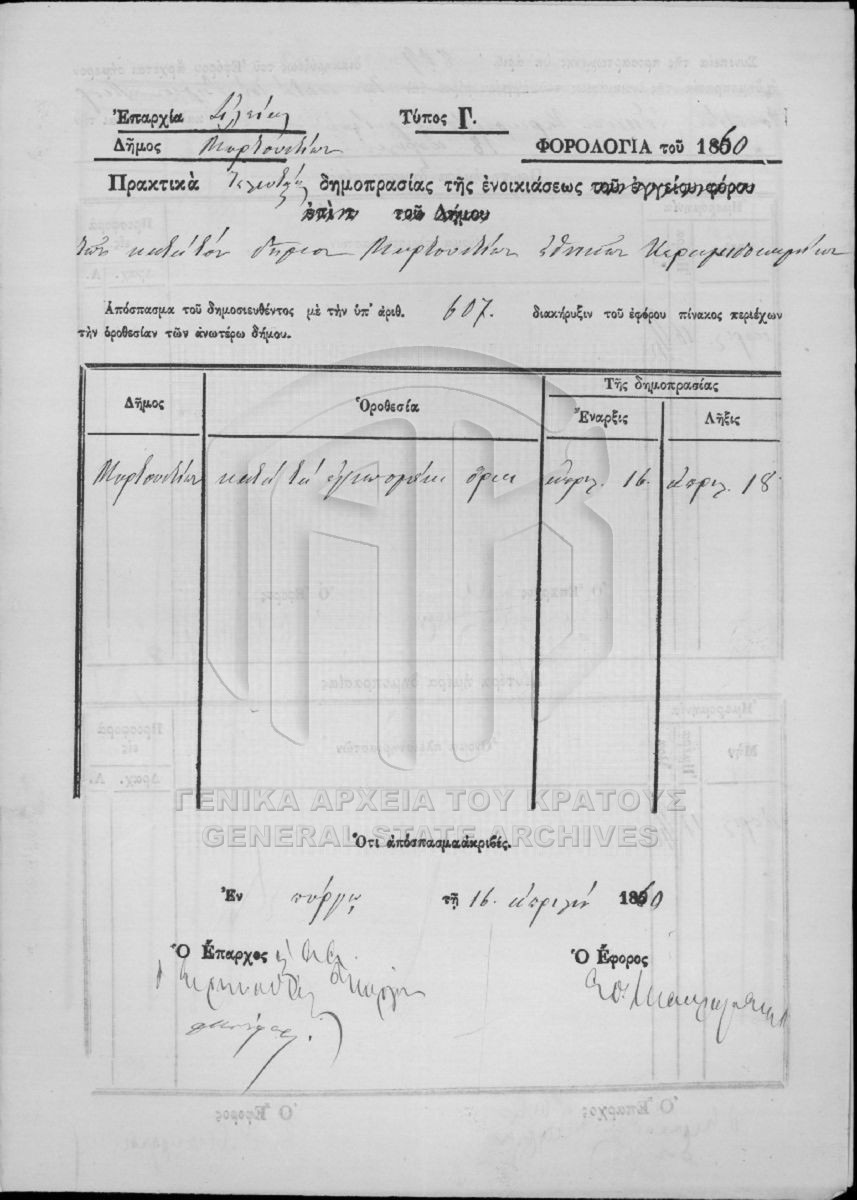 Ἐπαρχία Ἠλείας Τύπος Γ.
Δῆμος Μυρτουντίων ΦΟΡΟΛΟΓΙΑ τοῦ 1860
Πρακτικὰ δημοπρασίας τῆς ἐνοικιάσεως τοῦ ἐγγείου φόρου
ἐπὶ τ τοῦ Δήμου
τῶν κατὰ τὸν δῆμον Μυρτουντίων ἐθνικῶν Κεραμιδοκαμίνων
Ἀπόσπασμα τοῦ δημοσιευθέντος μὲ τὴν ὑπ' ἀριθ. 607. διακήρυξιν τοῦ ἐφόρου πίνακος περιέχων
τὴν ὁροθεσίαν τῶν ἀνωτέρω δήμου.
Δῆμος Ὁροθεσία Τῆς δημοπρασίας
Ἔναρξις Λῆξις
Μυρτουντίων κατὰ τὰ ὅρια ἀπριλ. 16. ἀπριλ. 18
ΓΕΝΙΚΑ ΑΡΧΕΙΑ ΤΟΥ ΚΡΑΤΟΥΣ
GENERAL STATE ARCHIVES
Ὅτι ἀπόσπασμα ἀκριβές.
Ἐν Πύργῳ τῇ 16. ἀπριλίου 1860
Ὁ Ἔπαρχος Ὁ Ἔφορος